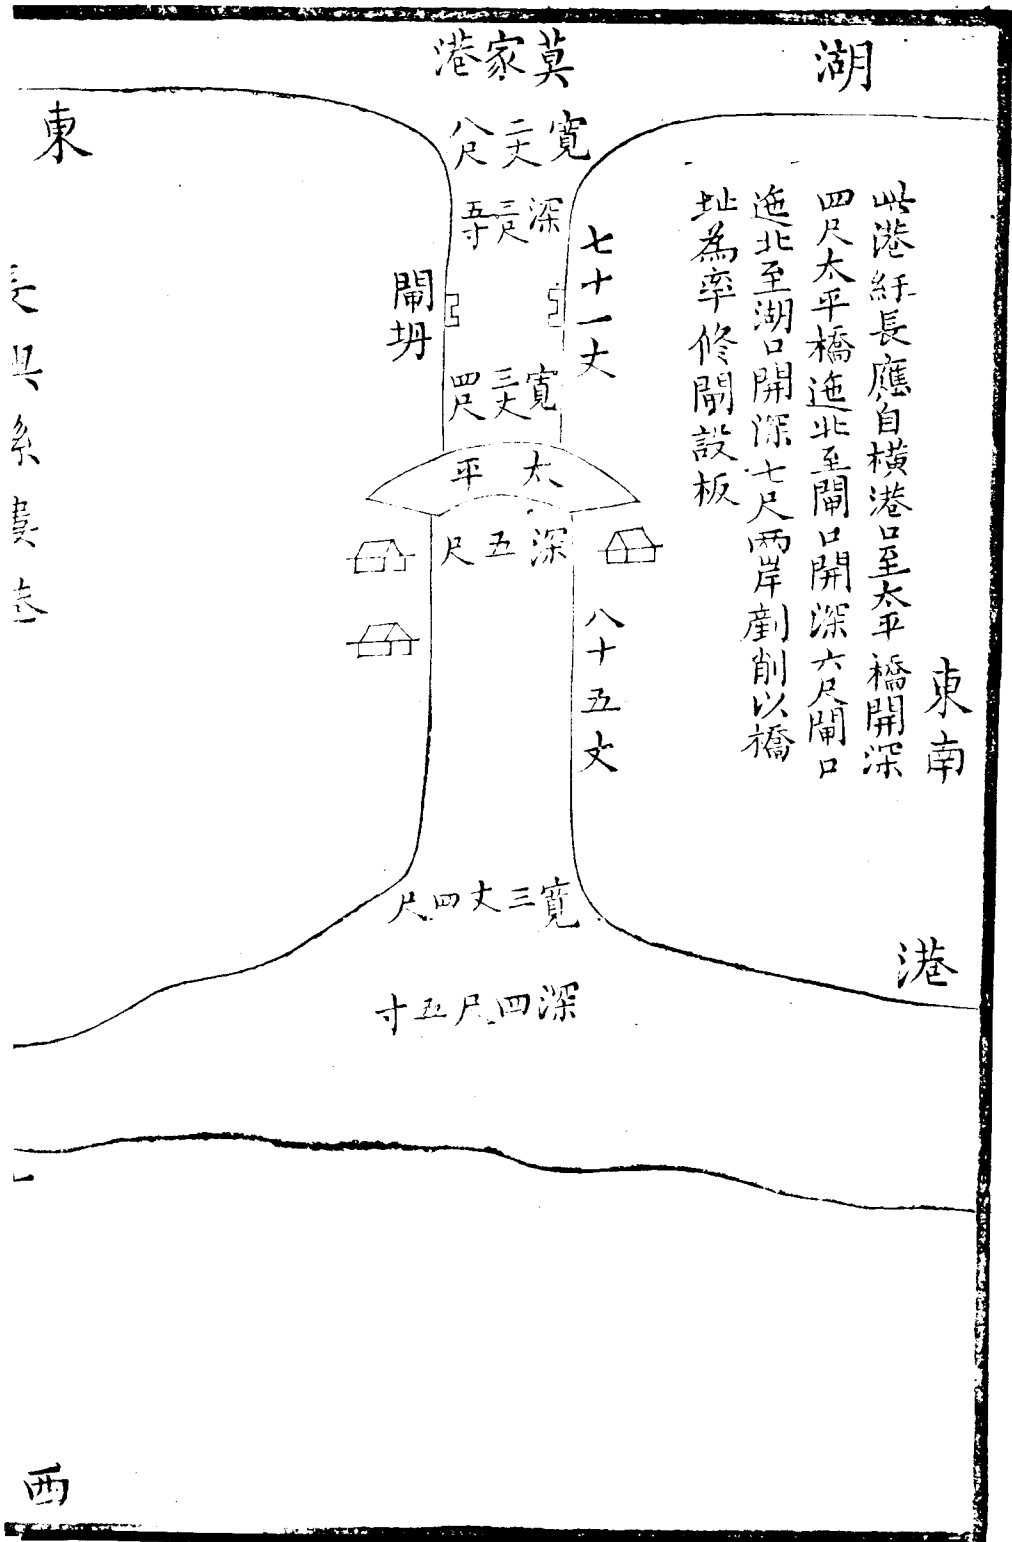 湖
莫家港
寬二丈八尺
深三尺五寸
七十一丈
閘坍
寬三丈四尺
太平
深五尺
八十五丈
寬三丈四尺
深四尺五寸
東南
港
此港紆長應自橫港口至太平橋開深
四尺太平橋迤北至閘口開深六尺閘口
迤北至湖口開深七尺兩岸剷削以橋
址為率修閘設板
東
西